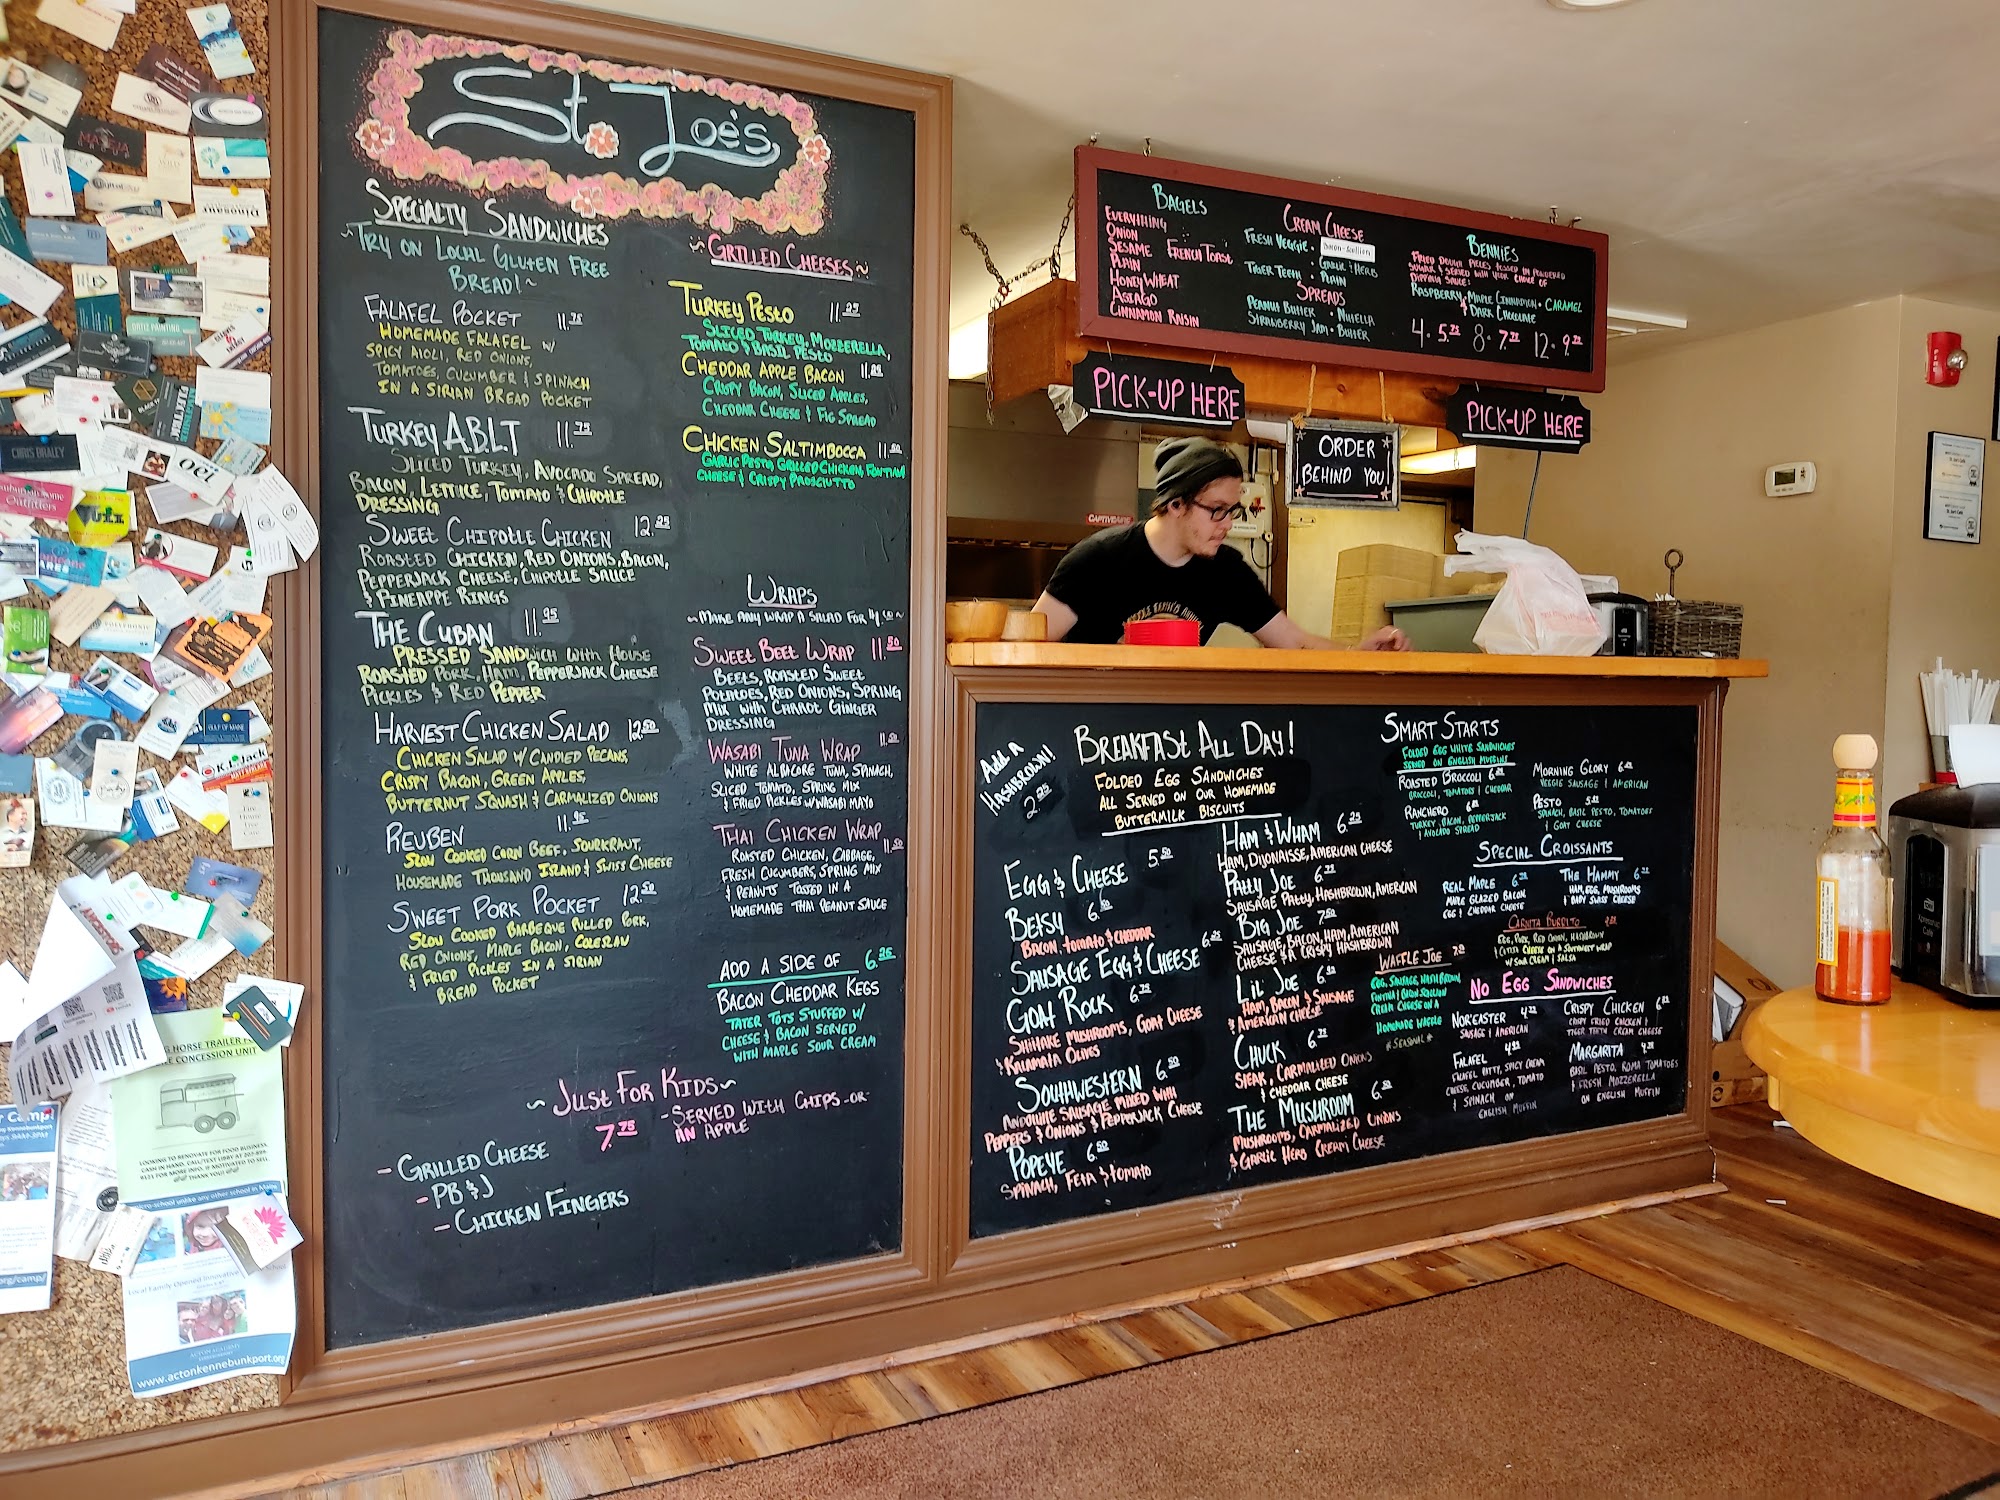 St. Joe's
SPECIALTY SANDWICHES
~TRY ON LOCAL GLUTEN FREE
BREAD!~
FALAFEL POCKET 11.75
HOMEMADE FALAFEL W/
SPICY AIOLI, RED ONIONS,
TOMATOES, CUCUMBER & SPINACH
IN A SIRIAN BREAD POCKET
TURKEY A.B.L.T 11.75
SLICED TURKEY, AVOCADO SPREAD,
BACON, LETTICE, TOMATO & CHIPOTLE
DRESSING
SWEET CHIPOTLE CHICKEN 12.25
ROASTED CHICKEN, RED ONIONS, BACON,
PEPPERJACK CHEESE, CHIPOTLE SAUCE
& PINEAPPE RINGS
THE CUBAN 11.95
PRESSED SANDWICH WITH HOUSE
ROASTED PORK, HAM, PEPPERJACK CHEESE
PICKLES & RED PEPPER
HARVEST CHICKEN SALAD 12.50
CHICKEN SALAD W/ CANDIED PECANS,
CRISPY BACON, GREEN APPLES,
BUTTERNUT SQUASH & CARMALIZED ONIONS
REUBEN 11.95
SLOW COOKED CORN BEEF, SOURKRAUT,
HOUSEMADE THOUSAND ISLAND & SWISS CHEESE
SWEET PORK POCKET 12.50
SLOW COOKED BARBEQUE PULLED PORK,
RED ONIONS, MAPLE BACON, COLESLAW
& FRIED PICKLES IN A SIRIAN
BREAD POCKET
~GRILLED CHEESES~
TURKEY PESTO 11.25
SLICED TURKEY, MOZZERELLA,
TOMATO & BASIL PESTO
CHEDDAR APPLE BACON
CRISPY BACON, SLICED APPLES,
CHEDDAR CHEESE & FIG SPREAD
CHICKEN SALTIMBOCCA 11.50
GARLIC PESTO, GRILLED CHICKEN, FONTINA
CHEESE & CRISPY PROSCIUTTO
WRAPS
~MAKE ANY WRAP A SALAD FOR 4.00~
SWEET BEET WRAP 11.50
BEETS, ROASTED SWEET
POTATOES, RED ONIONS, SPRING
MIX WITH CARROT GINGER
DRESSING
WASABI TUNA WRAP 11.50
WHITE ALBACORE TUNA, SPINACH,
SLICED TOMATO, SPRING MIX
& FRIED PICKLES W/WASABI MAYO
THAI CHICKEN WRAP 11.50
ROASTED CHICKEN, CABBAGE,
FRESH CUCUMBERS, SPRING MIX
& PEANUTS TOSSED IN A
HOMEMADE THAI PEANUT SAUCE
ADD A SIDE OF 6.25
BACON CHEDDAR KEGS
TATER TOTS STUFFED W/
CHEESE & BACON SERVED
WITH MAPLE SOUR CREAM
~JUST FOR KIDS~
7.75 -SERVED WITH CHIPS -OR-
AN APPLE
-GRILLED CHEESE
-PB & J
-CHICKEN FINGERS
BAGELS
EVERYTHING
ONION
SESAME FRENCH TOAST
PLAIN
HONEY WHEAT
ASIAGO
CINNAMON RAISIN
CREAM CHEESE
FRESH VEGGIE · Bacon-Scallion
· GARLIC & HERB
TIGER TEETH · PLAIN
SPREADS
PEANUT BUTTER · NUTELLA
STRAWBERRY JAM · BUTTER
BENNIES
FRIED DOUGH PIECES TOSSED IN POWDERED
SUGAR & SERVED WITH YOUR CHOICE OF
DIPPING SAUCE:
RASPBERRY · MAPLE CINNAMON · CARAMEL
& DARK CHOCOLATE
4·5.75 8·7.75 12·9.75
PICK-UP HERE
ORDER
BEHIND YOU!
PICK-UP HERE
CAPTIVEAIRE
FIRE
ADD A
HASHBROWN!
2.25
BREAKFAST ALL DAY!
FOLDED EGG SANDWICHES
ALL SERVED ON OUR HOMEMADE
BUTTERMILK BISCUITS
EGG & CHEESE 5.50
BETSY 6.50
BACON, TOMATO & CHEDDAR
SAUSAGE EGG & CHEESE 6.25
GOAT ROCK 6.75
SHIITAKE MUSHROOMS, GOAT CHEESE
& KALAMATA OLIVES
SOUTHWESTERN 6.50
ANDOUILLE SAUSAGE MIXED WITH
PEPPERS & ONIONS & PEPPERJACK CHEESE
POPEYE 6.50
SPINACH, FETA & TOMATO
HAM & WHAM 6.25
HAM, DIJONAISSE, AMERICAN CHEESE
PATTY JOE
SAUSAGE PATTY, HASHBROWN, AMERICAN
BIG JOE 7.50
SAUSAGE, BACON, HAM, AMERICAN
CHEESE & A CRISPY HASHBROWN
LIL' JOE
HAM, BACON & SAUSAGE
& AMERICAN CHEESE
CHUCK
STEAK, CARMALIZED ONIONS
& CHEDDAR CHEESE
THE MUSHROOM 6.50
MUSHROOMS, CARMALIZED ONIONS
& GARLIC HERB CREAM CHEESE
WAFFLE JOE
EGG, SAUSAGE, HASH BROWN,
FONTINA & BACON SCALLION
CREAM CHEESE ON A
HOMEMADE WAFFLE
*SEASONAL*
SMART STARTS
FOLDED EGG WHITE SANDWICHES
SERVED ON ENGLISH MUFFINS
ROASTED BROCCOLI
BROCCOLI, TOMATOES & CHEDDAR
RANCHERO
TURKEY, BACON, PEPPERJACK
& AVOCADO SPREAD
MORNING GLORY
VEGGIE SAUSAGE & AMERICAN
PESTO
SPINACH, BASIL PESTO, TOMATOES
& GOAT CHEESE
SPECIAL CROISSANTS
REAL MAPLE
MAPLE GLAZED BACON
EGG & CHEDDAR CHEESE
THE HAMMY
HAM, EGG, MUSHROOMS
& BABY SWISS CHEESE
CARNITA BURRITO
EGG, PORK, RED ONION, HASHBROWN
& COTIJA CHEESE ON A SOUTHWEST WRAP
W/ SOUR CREAM & SALSA
NO EGG SANDWICHES
NOR'EASTER
SAUSAGE & AMERICAN
CRISPY CHICKEN
CRISPY FRIED CHICKEN &
TIGER TEETH CREAM CHEESE
FALAFEL
FALAFEL PATTY, SPICY CREAM
CHEESE, CUCUMBER, TOMATO
& SPINACH ON
ENGLISH MUFFIN
MARGARITA
BASIL PESTO, ROMA TOMATOES
& FRESH MOZZERELLA
ON ENGLISH MUFFIN
CHRIS BRALEY
oei
Outfitters
ORTIZ PAINTING
GULF OF MAINE
K.L. Jack
HORSE TRAILER
CONCESSION UNIT
LOOKING TO RENOVATE FOR FOOD BUSINESS.
Local Family Opened Innovative
ACTON ACADEMY
www.actonkennebunkport.org